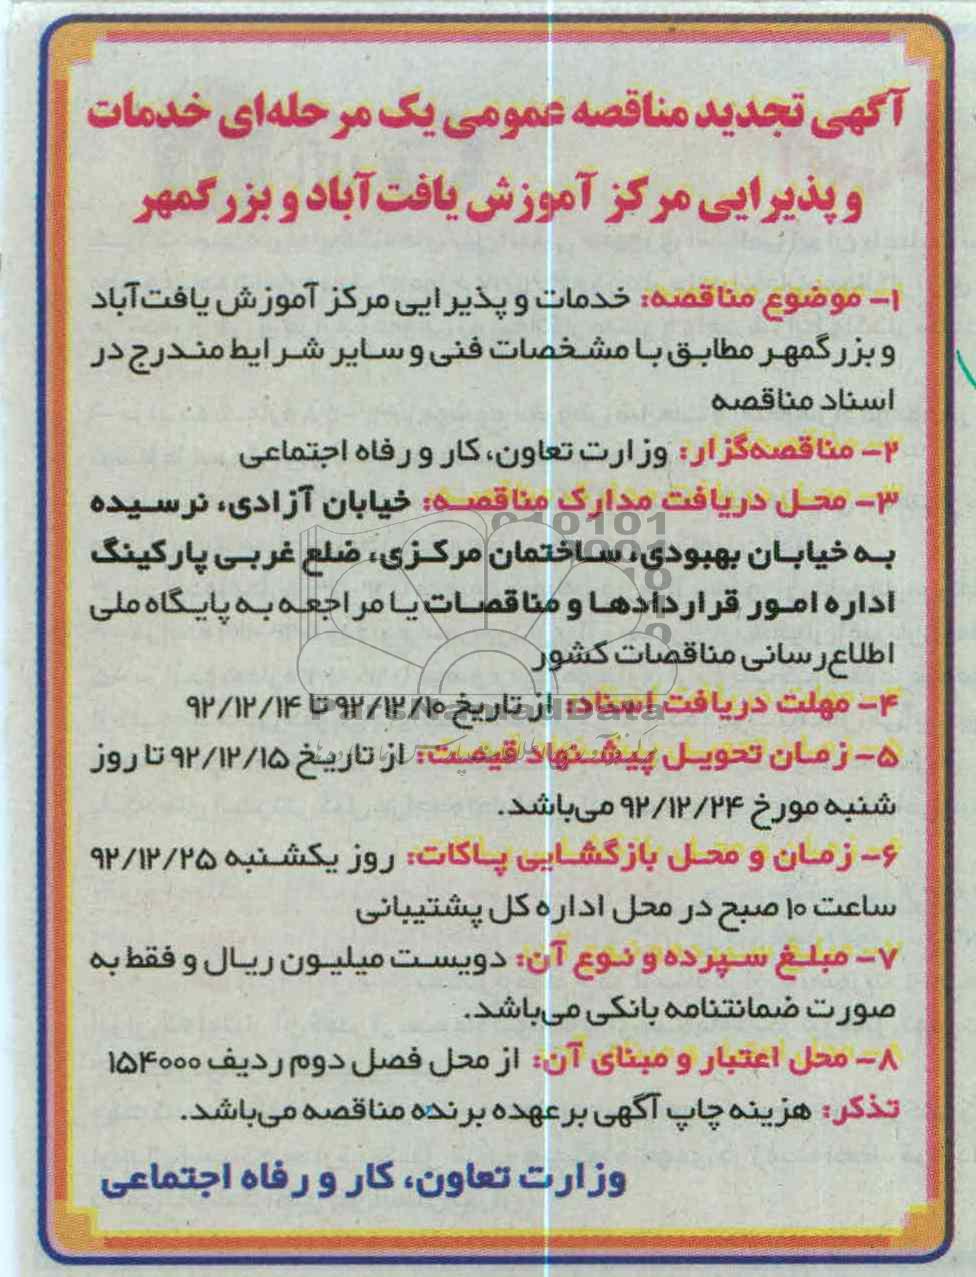 آگهی تجدید مناقصه عمومی یک مرحله‌ای خدمات
و پذیرایی مرکز آموزش یافت‌آباد و بزرگمهر
۱- موضوع مناقصه: خدمات و پذیرایی مرکز آموزش یافت‌آباد
و بزرگمهر مطابق با مشخصات فنی و سایر شرایط مندرج در
اسناد مناقصه
۲- مناقصه‌گزار: وزارت تعاون، کار و رفاه اجتماعی
۳- محل دریافت مدارک مناقصه: خیابان آزادی، نرسیده
به خیابان بهبودی، ساختمان مرکزی، ضلع غربی پارکینگ
اداره امور قراردادها و مناقصات یا مراجعه به پایگاه ملی
اطلاع‌رسانی مناقصات کشور
۴- مهلت دریافت اسناد: از تاریخ ۹۲/۱۲/۱۰ تا ۹۲/۱۲/۱۴
ParsNamadData
۵- زمان تحویل پیشنهاد قیمت: از تاریخ ۹۲/۱۲/۱۵ تا روز
شنبه مورخ ۹۲/۱۲/۲۴ می‌باشد.
۶- زمان و محل بازگشایی پاکات: روز یکشنبه ۹۲/۱۲/۲۵
ساعت ۱۰ صبح در محل اداره کل پشتیبانی
۷- مبلغ سپرده و نوع آن: دویست میلیون ریال و فقط به
صورت ضمانتنامه بانکی می‌باشد.
۸- محل اعتبار و مبنای آن: از محل فصل دوم ردیف ۱۵۴۰۰۰
تذکر: هزینه چاپ آگهی برعهده برنده مناقصه می‌باشد.
وزارت تعاون، کار و رفاه اجتماعی